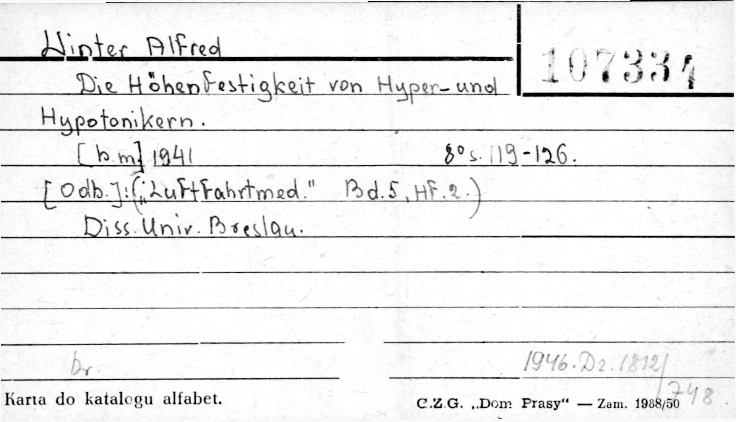 Winter Alfred
107334
Die Höhenfestigkeit von Hyper- und
Hypotonikern.
[b.m] 1941 8° s. 119-126.
[Odb.]: ("Luftfahrtmed." Bd. 5, Hf. 2.)
Diss. Univ. Breslau.
br.
1946. Dz. 1812/
748
Karta do katalogu alfabet.
C.Z.G. „Dom Prasy" — Zam. 1988/50